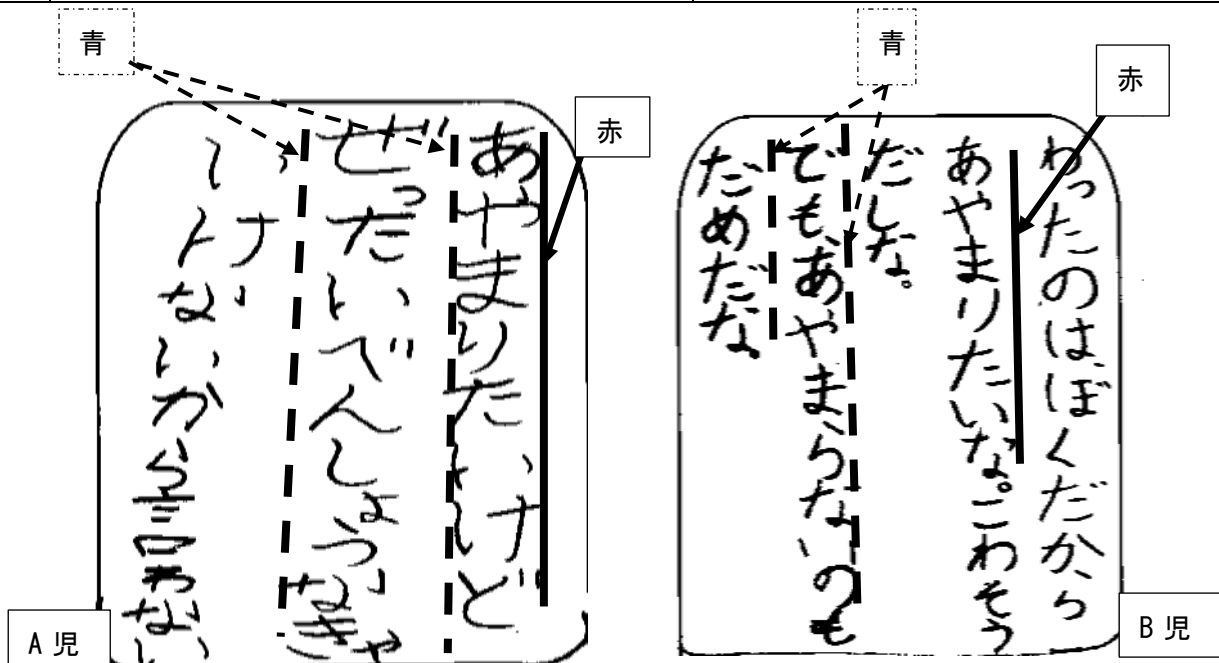 青
赤
あやまりたいけど
ぜったいべんしょうしなきゃ
いけないから言わない
A児
青
赤
わったのは、ぼくだから
あやまりたいな。こわそう
だしな。
でも、あやまらないのも
だめだな。
B児